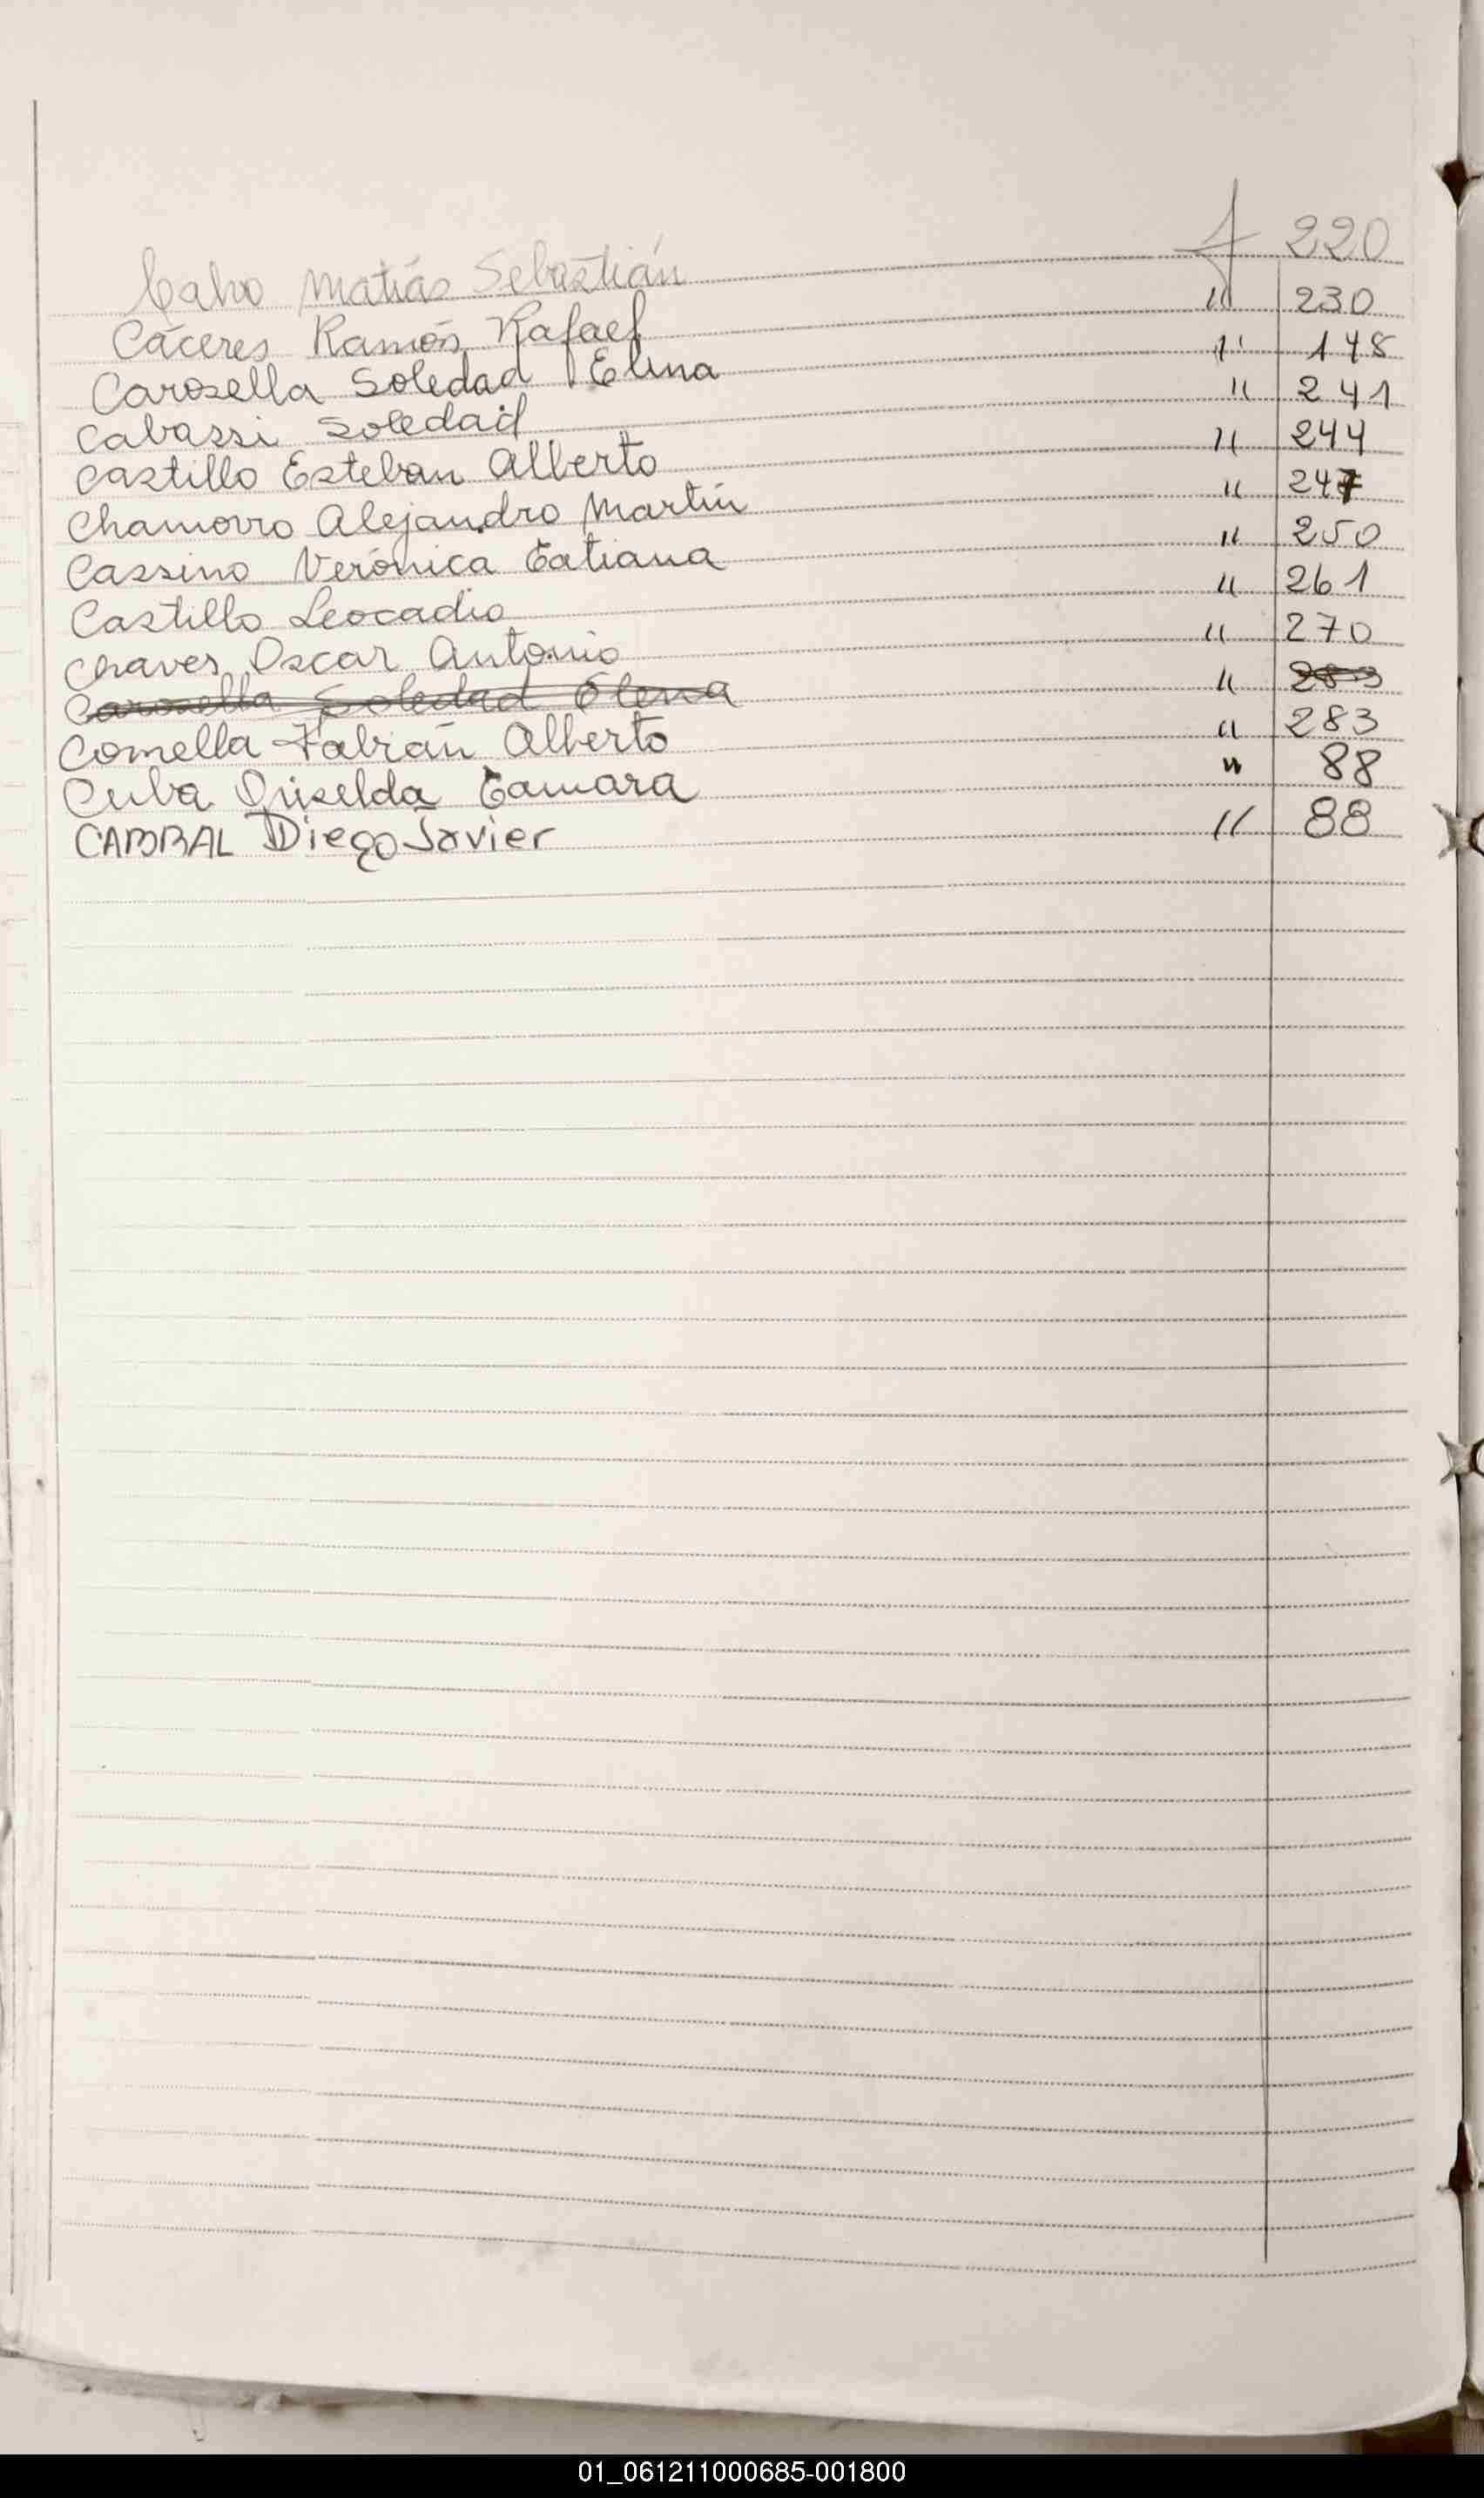 Calvo Matías Sebastián f 220
Cáceres Ramón Rafael " 230
Carosella Soledad Elina " 148
Cabassi Soledad " 241
Castillo Esteban Alberto " 244
Chamorro Alejandro Martín " 247
Cassino Verónica Tatiana " 250
Castillo Leocadio " 261
Chaves Oscar Antonio " 270
Carosella Soledad Elena " 283
Comella Fabián Alberto " 283
Cuba Griselda Tamara " 88
CABRAL Diego Javier " 88
01_061211000685-001800